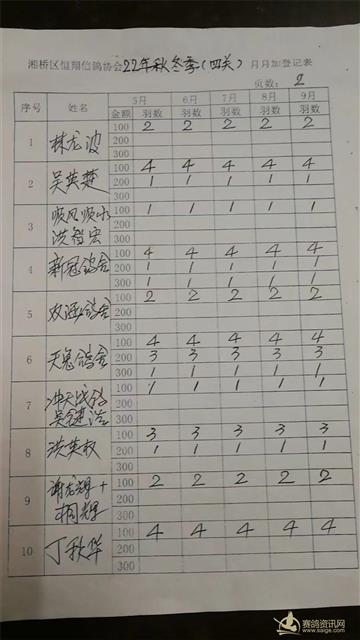 湘桥区恒翔信鸽协会22年秋冬季(四关)月月加登记表
页数: 2
序号 姓名 5月 6月 7月 8月 9月
金额 羽数 羽数 羽数 羽数 羽数
1 林龙波 100 2 2 2 2 2
200
300
2 吴英楚 100 4 4 4 4 4
200 1 1 1 1 1
300
3 顺风顺水 100 1 1 1 1 1
洪智宏 200
300
4 新冠鸽舍 100 4 4 4 4 4
200 1 1 1 1 1
300 1 1 1 1 1
5 双涵鸽舍 100 2 2 2 2 2
200
300
6 天鬼鸽舍 100 4 4 4 4 4
200 3 3 3 3 3
300 1 1 1 1 1
7 冲天战鸽 100 1 1 1 1 1
吴健浩 200
300
8 洪英权 100 3 3 3 3 3
200 1 1 1 1 1
300
9 谢龙辉+ 100 2 2 2 2 2
辉 200
300
10 丁秋华 100 4 4 4 4 4
200
300
赛鸽资讯网
www.saige.com